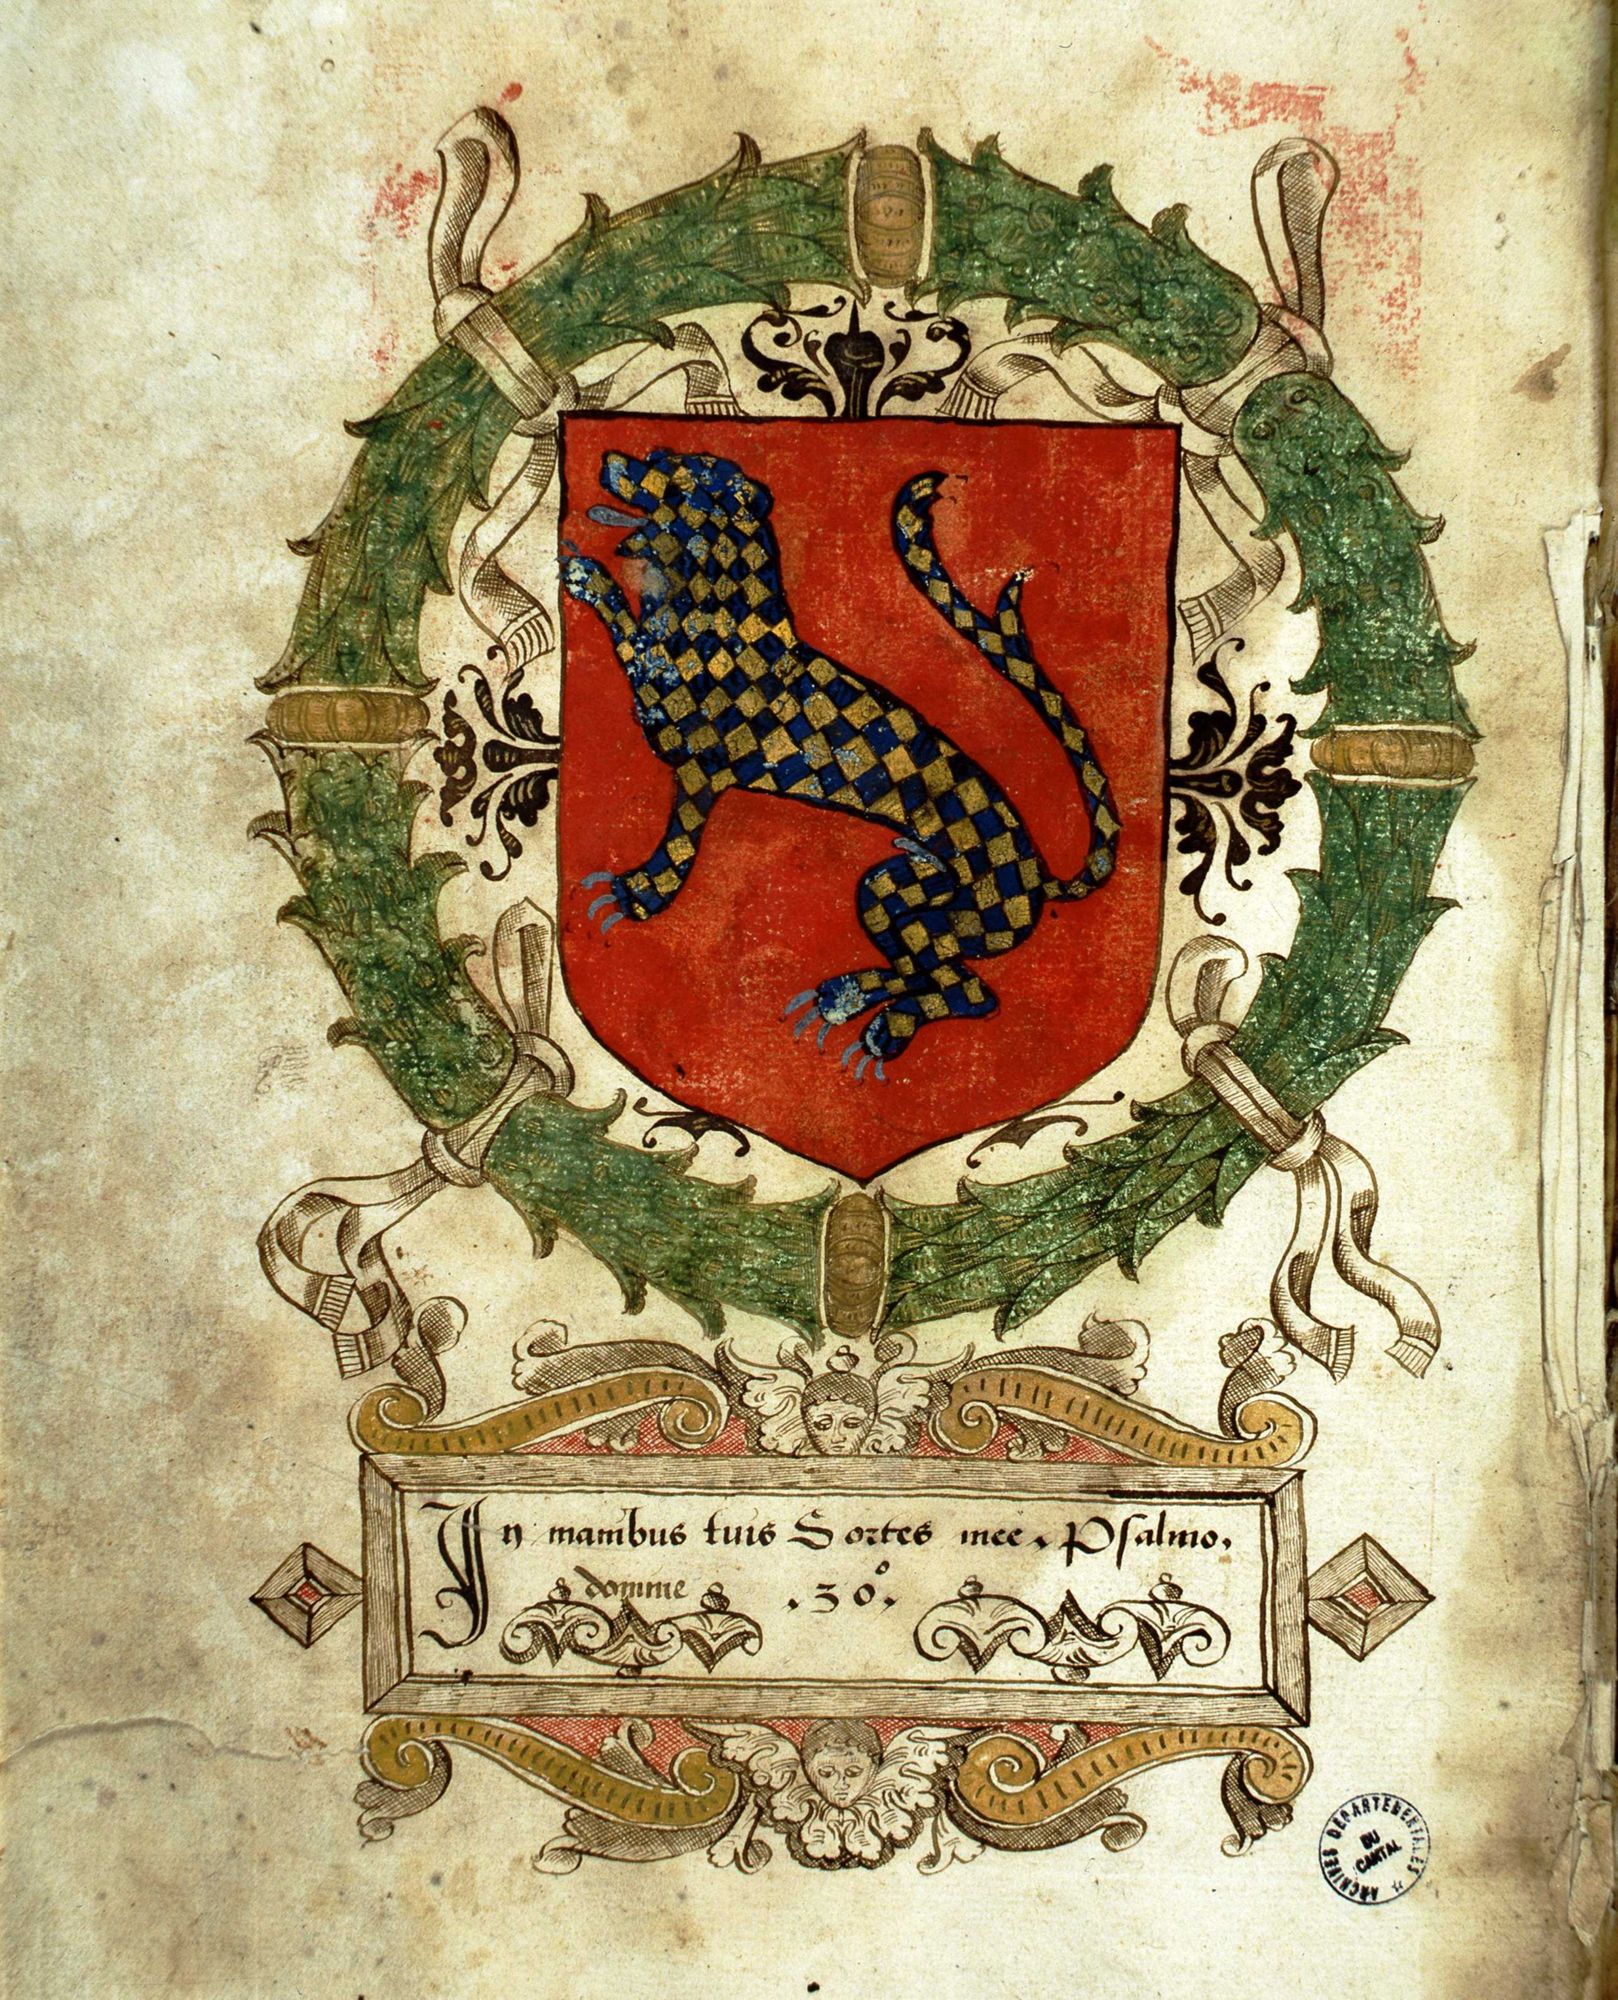 In manibus tuis Sortes mee. Psalmo.
domine .30º.
ARCHIVES DÉPARTEMENTALES
DU
CANTAL